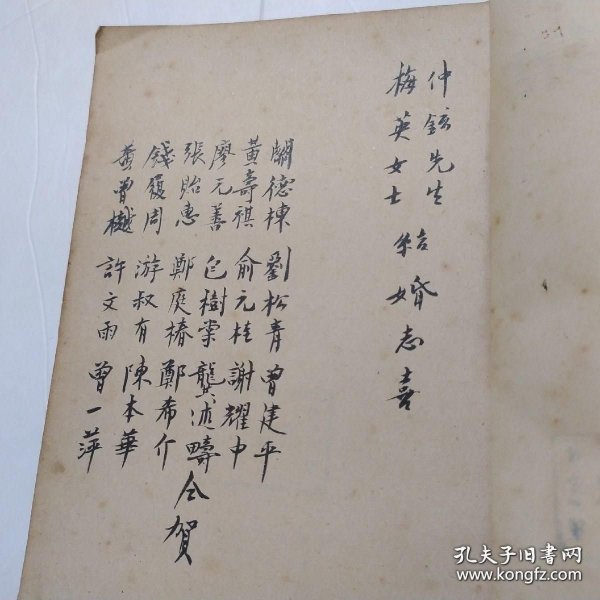 仲鋐先生
梅英女士 結婚志喜
關德棟 劉松青 曾建平
黃壽祺 俞元桂 謝耀中
廖元善 包樹棠 龔述疇
張貽惠 鄭庭椿 鄭希介
錢履周 游叔有 陳本華
黃曾樾 許文雨 曾一萍
仝賀
孔夫子旧书网
www.kongfz.com